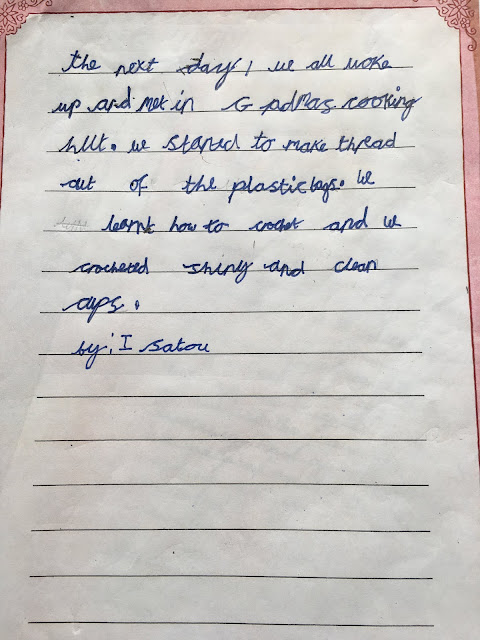 the next day, we all woke
up and met in cooking
hut. we started to make thread
out of the plastic bags. We
learnt how to crochet and we
crocheted shiny and clean
cups.
by: I satou